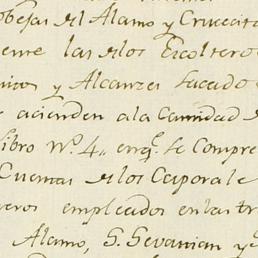 obejas del Alamo y Crucecita
eme las de los Escoltero
y Alcanzes sacado
e acienden ala Cantidad d
libro nº. 4., enq.e se Compre
Cuentas de los Caporale
eros empleados en las tr
Alamo, S. Sevastian y